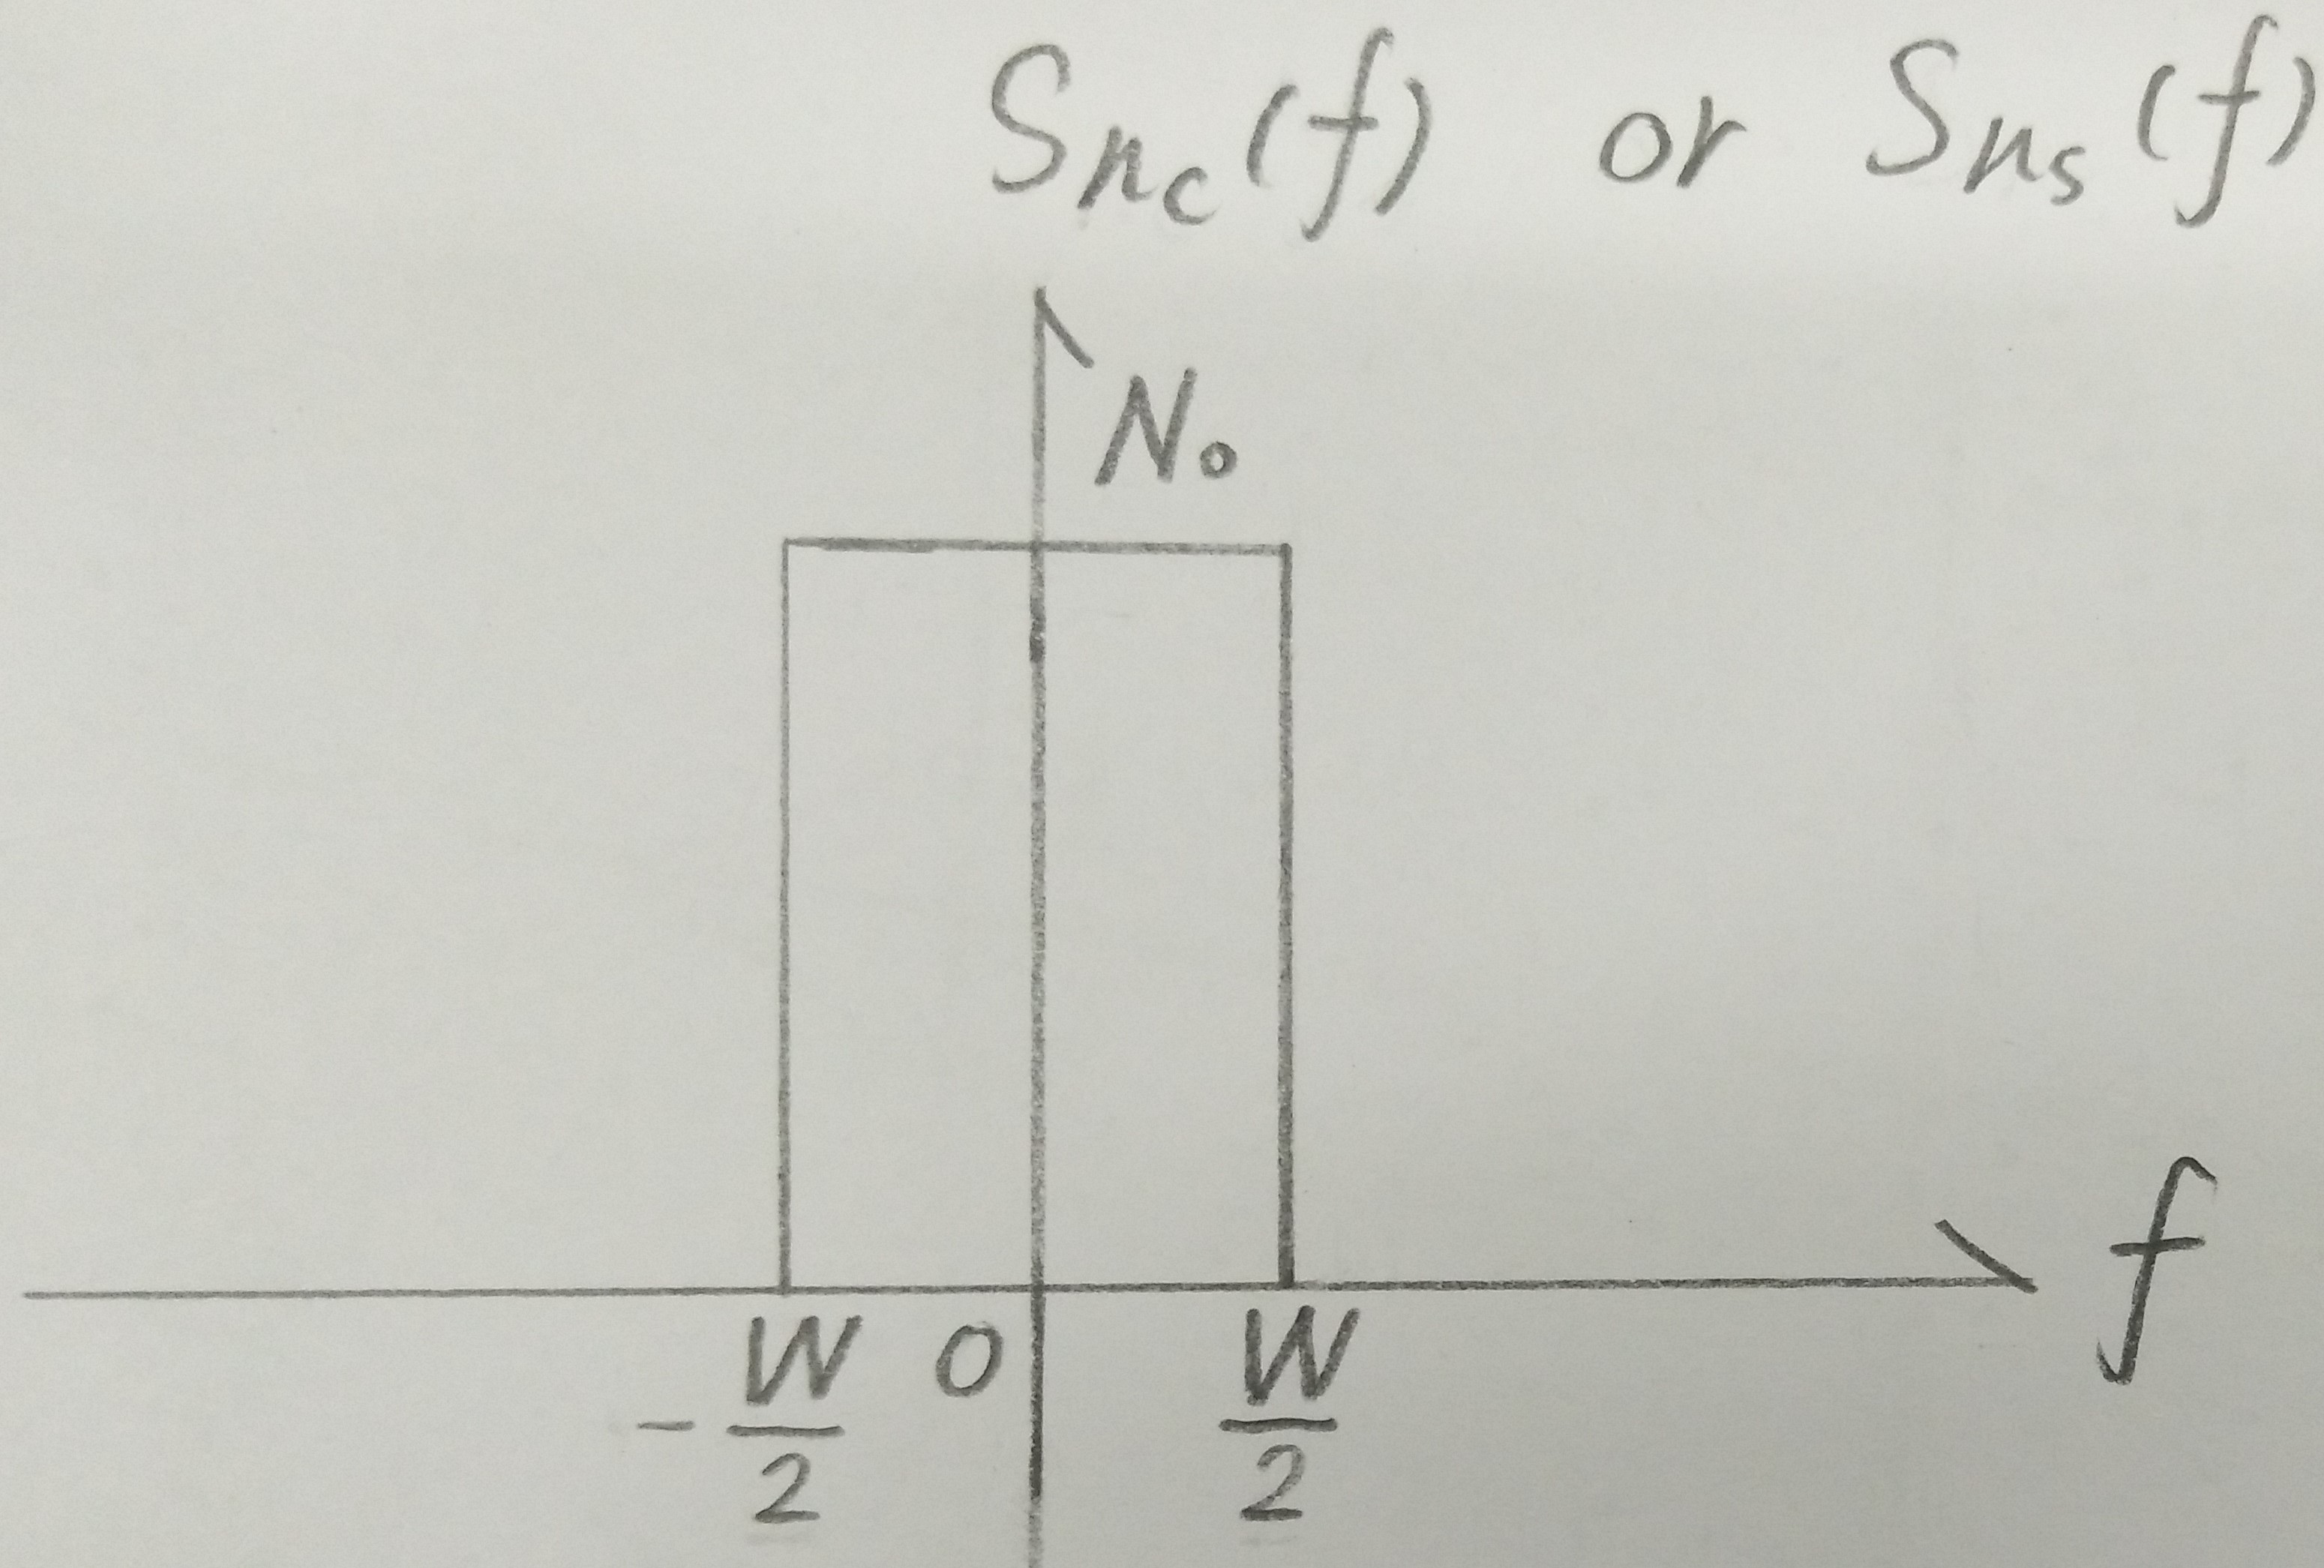 S_{n_c}(f) or S_{n_s}(f)
N₀
f
-W/2 0 W/2